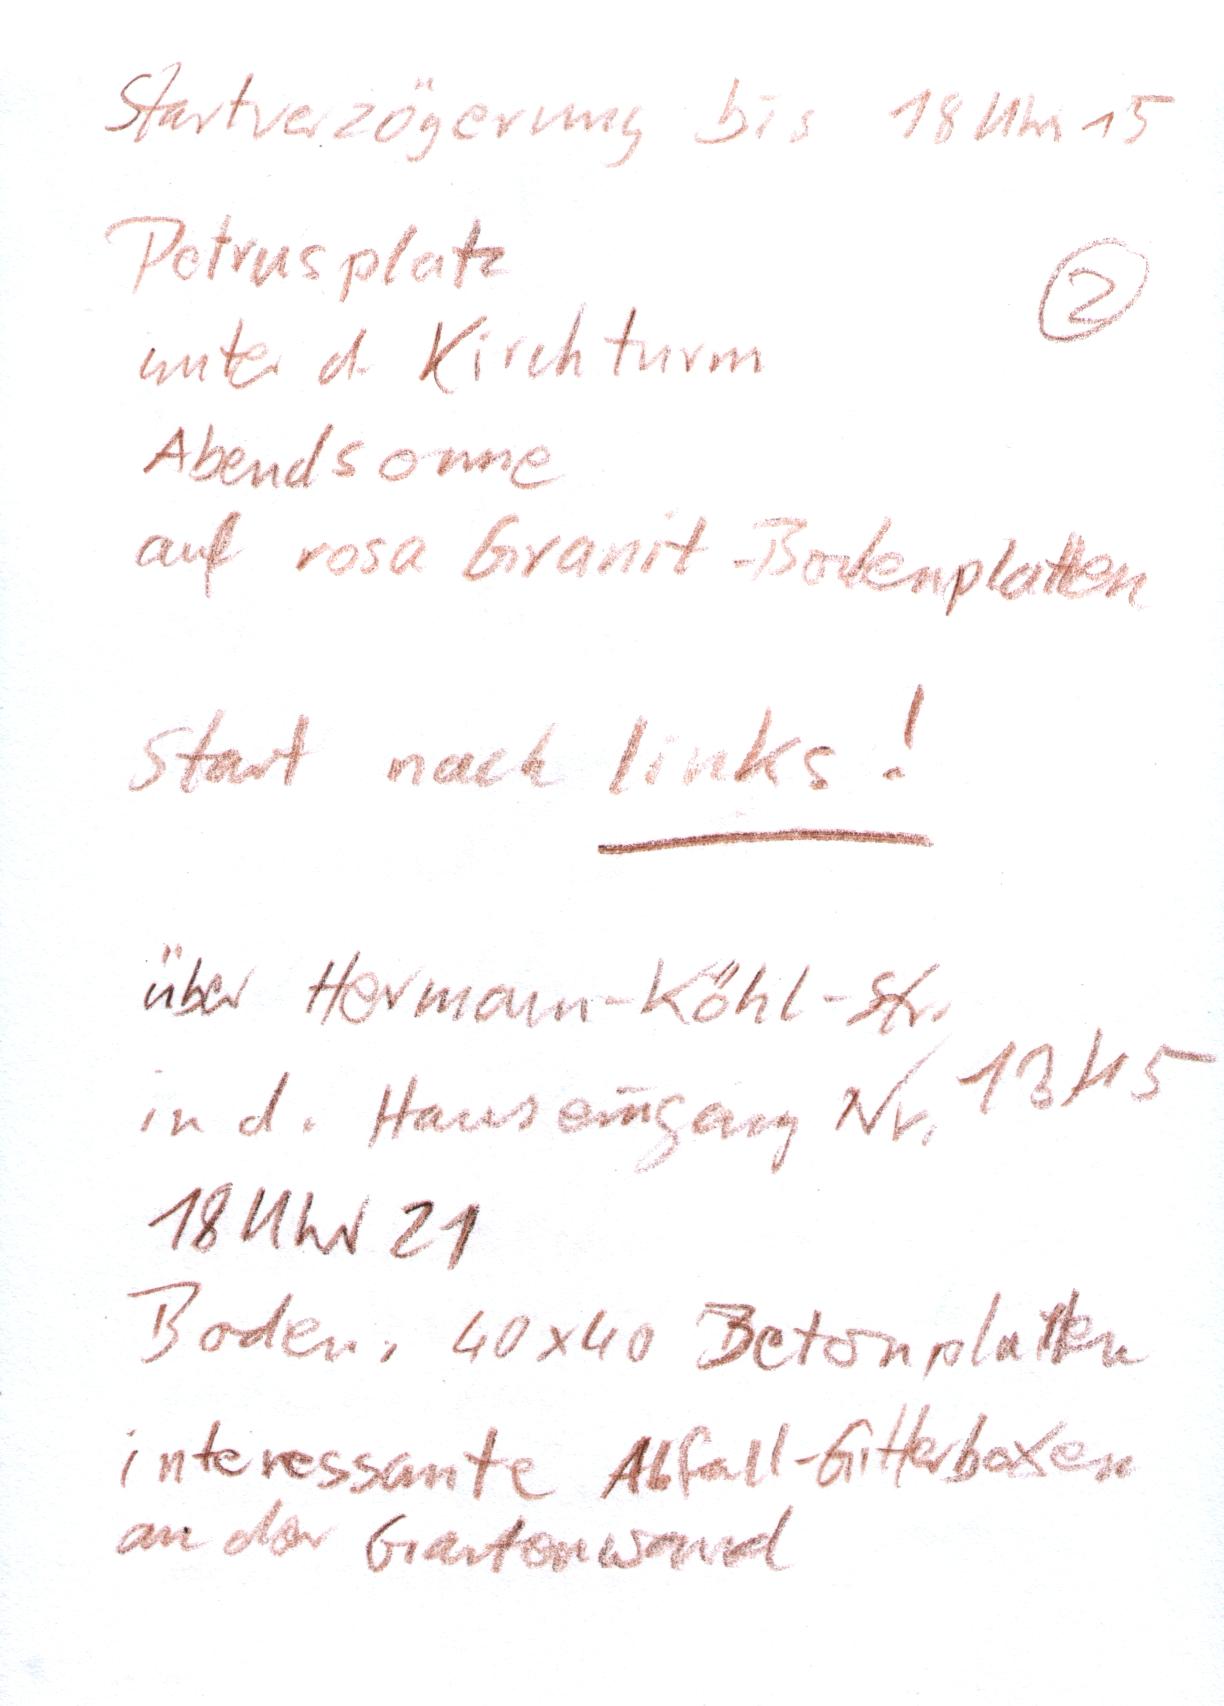 Startverzögerung bis 18 Uhr 15
Petrusplatz
②
unter d. Kirchturm
Abendsonne
auf rosa Granit-Bodenplatten
Start nach links!
über Hermann-Köhl-Str.
in d. Hauseingang Nr. 13/15
18 Uhr 21
Boden, 40x40 Betonplatten
interessante Abfall-Gitterboxen
an der Gartenwand